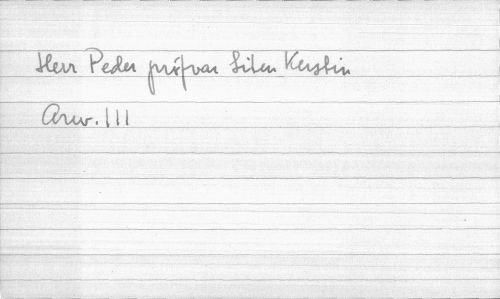 Herr Peder pröfvar liten Kerstin
Arw. III